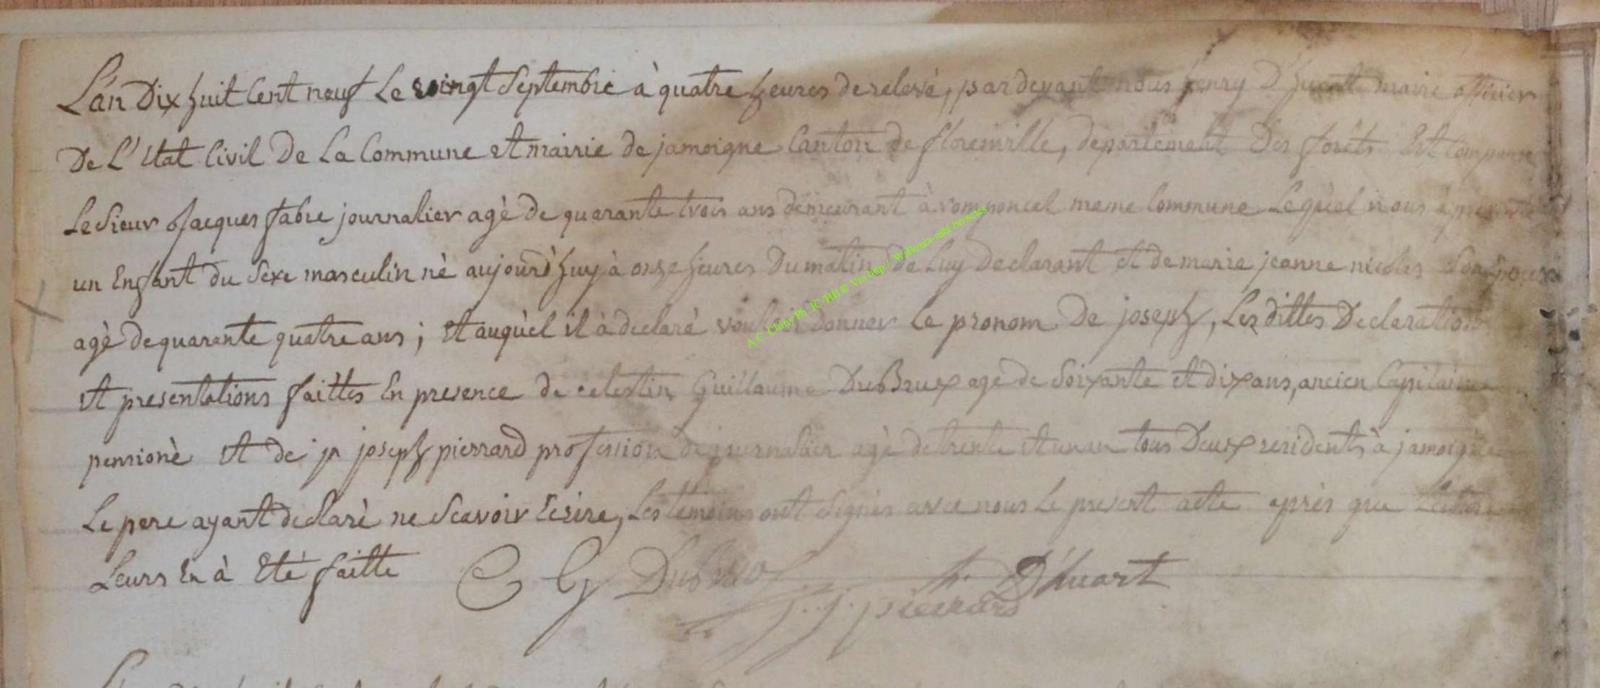 L'an Dix huit Cent neuf Le vingt Septembre à quatre heures de relevé, pardevant nous henry D'huart maire officier
De L'état Civil de La Commune et mairie de jamoigne Canton de florenville, departement Des forêts Est Comparu
Le Sieur Jacques fabre journalier agé de quarante trois ans demeurant à romponcel meme Commune Lequel nous à presenté
un Enfant du Sexe masculin né aujourd'huy à onze heures Du matin de Luy Declarant et de marie jeanne nicolas Son epouse
agé de quarante quatre ans ; et auquel il à declaré vouloir donner le pronom De joseph, Les dittes Declaration
et presentations faittes En presence de celestin Guillaume DuBrux agé de Soixante et dix ans, ancien Capitaine
pensioné et de jn joseph pierrard profession de journalier agé de trente et un an tous Deux residents à jamoigne
Le pere ayant declaré ne Scavoir Ecrire, Les temoins ont Signés avec nous le present acte après que Lecture
Leurs En à Eté faitte
C G DuBrux
h. D'huart
j. j. pierrard